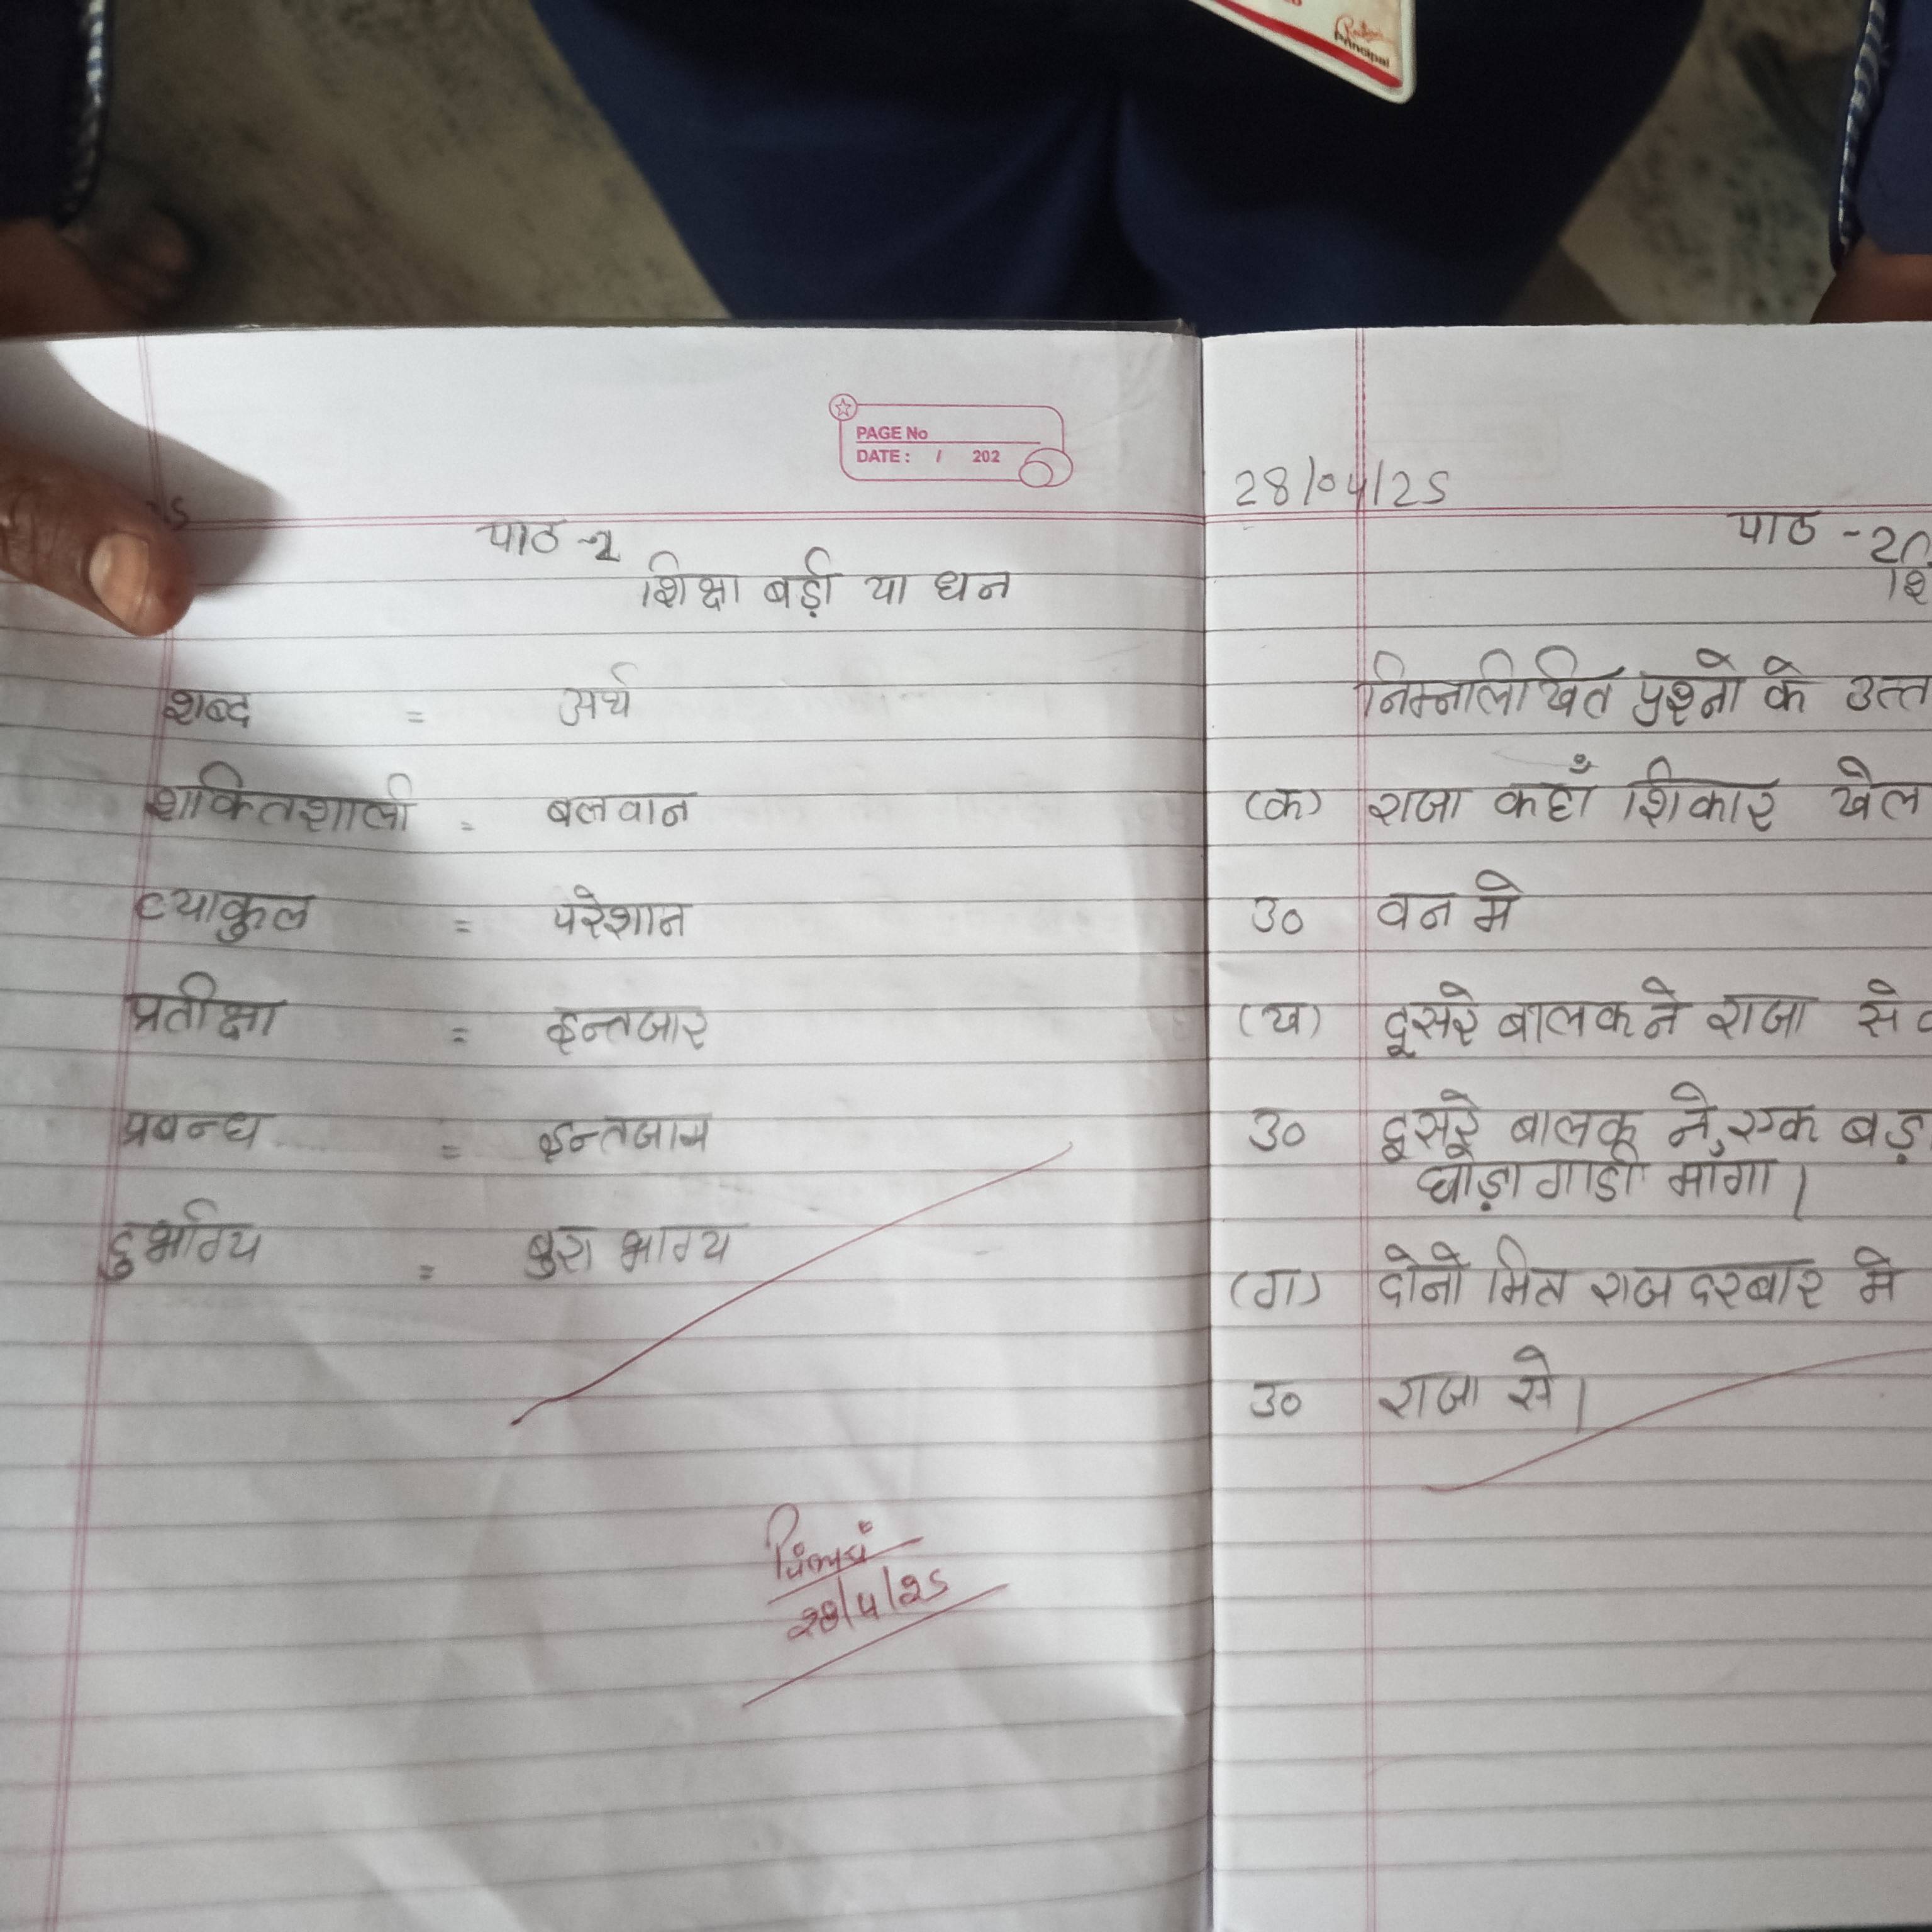 Principal
PAGE No
DATE : / 202
पाठ -2
शिक्षा बड़ी या धन
शब्द = अर्थ
शक्तिशाली = बलवान
व्याकुल = परेशान
प्रतीक्षा = इन्तजार
प्रबन्ध = इन्तजाम
दुर्भाग्य = बुरा भाग्य
28/4/25
28/04/25
पाठ -2
शि
निम्नलिखित प्रश्नो के उत्त
(क) राजा कहाँ शिकार खेल
उ० वन मे
(ख) दूसरे बालक ने राजा से
उ० दूसरे बालक ने, एक बड़
घोड़ा गाडी माँगा।
(ग) दोनो मित्र राज दरबार मे
उ० राजा से।